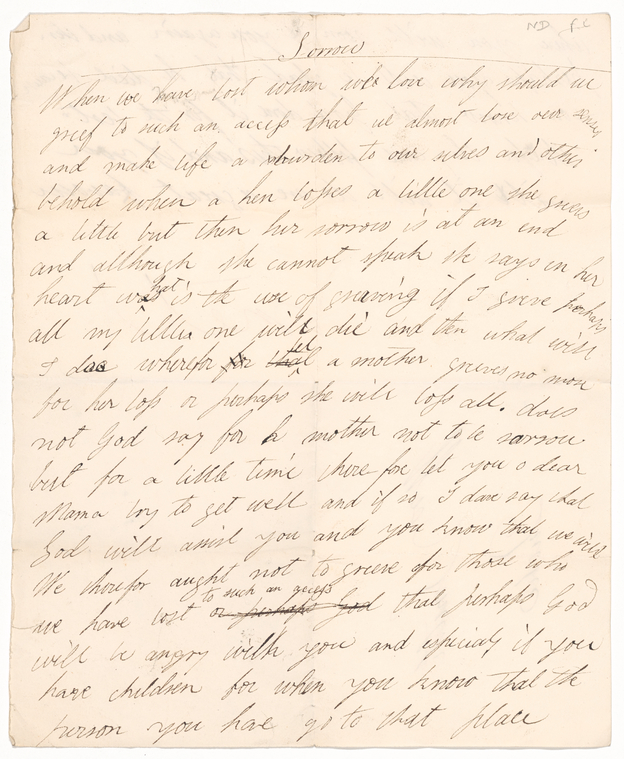 ND
Sorrow
When we have lost whom we love why should we
grief to such an access that we almost lose our senses
and make life a burden to our selves and others
behold when a hen losses a little one she grievs
a little but then her sorrow is at an end
and although she cannot speak she says in her
heart what is the use of graving if I grive perhaps
all my little one will die and then what will
I doo wherefor let a mother greeves no more
for her loss or perhaps she will loss all. does
not God say for a mother not to be sorrow
but for a little time therefore let you o dear
Mama try to get well and if so I dare say that
God will assist you and you know that we will
We therefor aught not to grieve for those who
we have lost to such an access that perhaps God
will be angry with you and especialy if you
have children for when you know that the
person you have go to that place